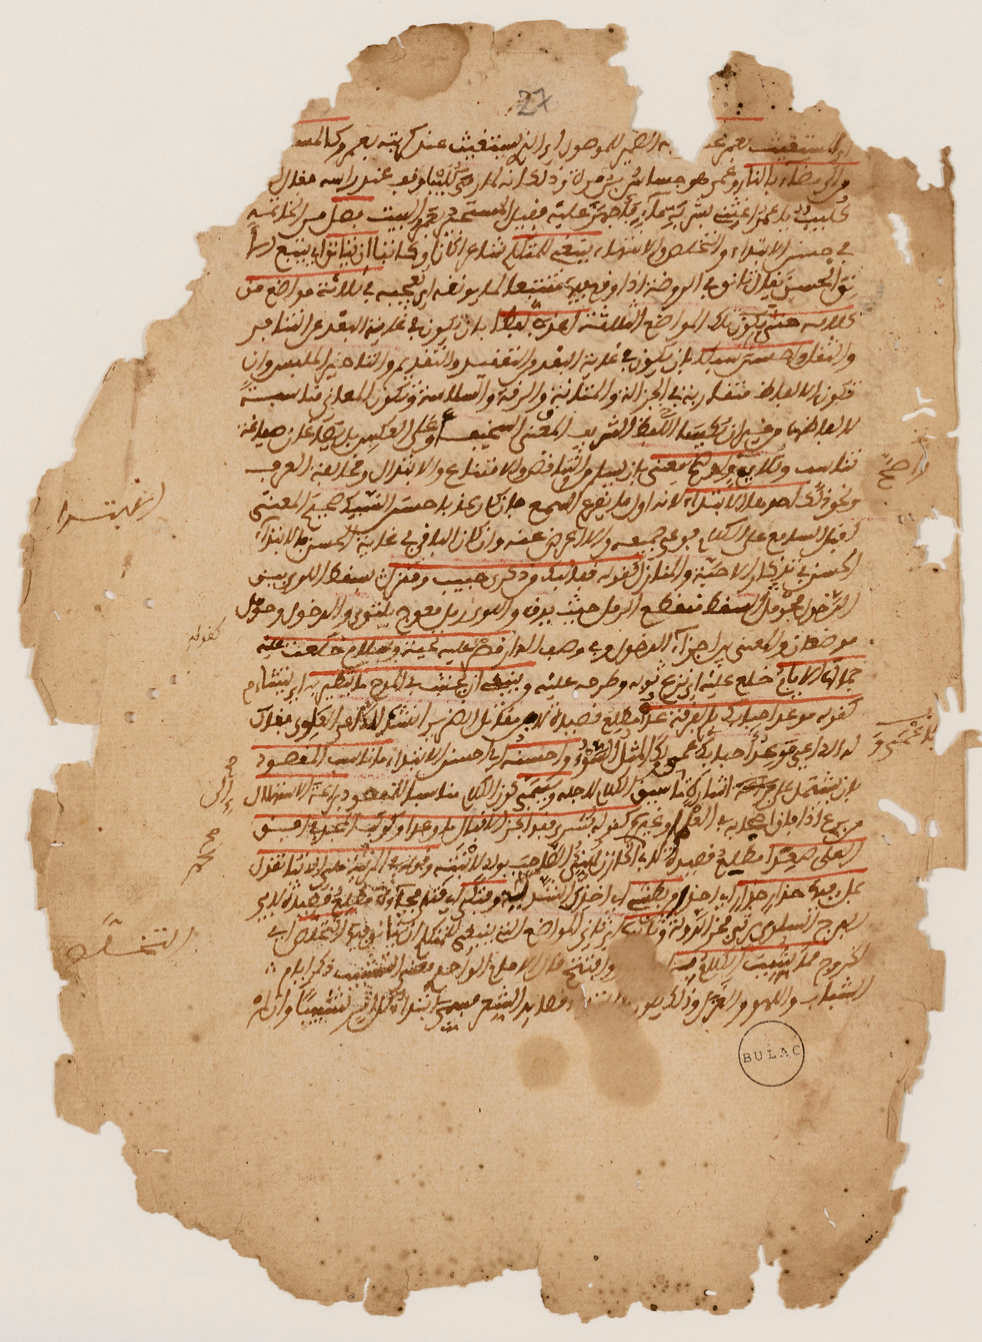 المستغيث بعمرو عند الضمير للموصول اي الذي يستغيث عند كربته بعمرو كالمستـ
من الرمضاء بالنار وعمرو هو جساس بن مرة وذلك انه لما رمى كليبا وقف عند راسه فقال
كليب يا عمرو اغثني بشربة ماء فاجهز عليه فقيل المستجير بعمرو البيت فصل من الخاتمة
في حسن الابتداء والتخلص والانتهاء ينبغي للمتكلم شاعرا كان او كاتبا ان يتانق اي يتتبع
الحسن يقال تانق في الروضة اذا وقع فيها متتبعا لما يونقه اي يعجبه في ثلاثة مواضع من
كلامه حتى يكون تلك المواضع الثلاثة اعذب لفظا بان يكون في غاية البعد عن التنافر
والثقل واحسن سبكا بان يكون في غاية البعد من التعقيد والتقديم والتاخير الملبس وان
تكون الالفاظ متقاربة في الجزالة والمتانة والرقة والسلاسة وتكون المعاني مناسبة
لالفاظها من غير ان يكسى اللفظ الشريف المعنى السخيف او على العكس بل يصاغان صياغة
تناسب وتلاؤم واصح معنى بان يسلم من التناقض والامتناع والابتذال ومخالفة العرف
ونحو ذلك احدها الابتداء لانه اول ما يقرع السمع فان كان عذبا حسن السبك صحيح المعنى
اقبل السامع على الكلام فوعى جميعه والا اعرض عنه وان كان الباقي في غاية الحسن فالابتداء
الحسن في تذكار الاحبة والمنازل كقوله قفا نبك من ذكرى حبيب ومنزل بسقط اللوى بين
الدخول فحومل السقط منقطع الرمل حيث يدق واللوى رمل معوج ملتوي والدخول وحومل
موضعان والمعنى بين اجزاء الدخول وفي وصف الدار قصر عليه تحية وسلام خلعت عليه
جمالها الايام خلع عليه اي نزع ثوبه وطرحه عليه وينبغي ان يجتنب في المدح ما يتطير به اي يتشاءم
كقوله موعد احبابك بالفرقة غد مطلع قصيدة لابن مقاتل الضرير انشدها للداعي العلوي فقال
له الداعي موعد احبابك يا اعمى ولك المثل السوء واحسنه اي احسن الابتداء ما ناسب المقصود
بان يشتمل على اشارة الى ما سيق الكلام لاجله ويسمى كون الكلام مناسبا للمقصود براعة الاستهلال
من برع اذا فاق اصحابه في العلم او غيره كقوله بشرى فقد انجز الاقبال ما وعدا وكوكب المجد في افق
العلى صعدا مطلع قصيدة لابي محمد الخازن يهنئ الصاحب بولد لابنته وقوله في المرثية هي الدنيا تقول
بملء فيها حذار حذار اي احذر من بطشي اي اخذي الشديد وفتكي اي قتلي فجأة مطلع قصيدة لابي
الفرج الساوي يرثي فخر الدولة وثانيها اي ثاني المواضع التي ينبغي للمتكلم ان يتانق فيها التخلص اي
الخروج مما شبب الكلام به وافتتح قال الامام الواحدي معنى التشبيب ذكر ايام
الشباب واللهو والغزل وذلك يكون في ابتداء قصائد الشعر فسمي ابتداء كل امر تشبيبا وان لم
27
الابتداء
كقوله
التخلص
BULAC